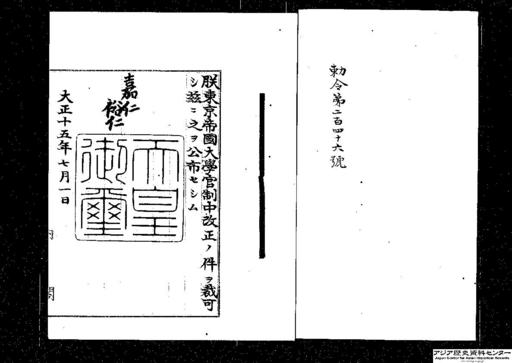 勅令第二百四十六號
朕東京帝國大學官制中改正ノ件ヲ裁可
シ茲ニ之ヲ公布セシム
嘉仁
裕仁
天皇
御璽
大正十五年七月一日
内閣
アジア歴史資料センター
Japan Center for Asian Historical Records